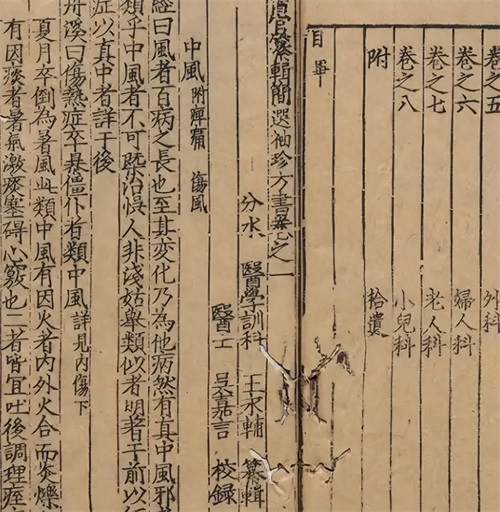 卷之五 外科
卷之六 婦人科
卷之七 老人科
卷之八 小兒科
附 拾遺
目畢
纂輯簡選袖珍方書卷之一
分水 醫學訓科 王永輔 纂輯
醫士 吳嘉言 校録
中風 附痺痛 傷風
經曰風者百病之長也至其變化乃為他病然有真中風邪
類乎中風者不可槩治悞人非淺姑舉類似者明著于前以
症以真中者詳于後
丹溪曰傷熱症卒暴僵仆者類中風 詳見内傷下
夏月卒倒為暑風此類中風有因火者内外火合而炎爍
有因痰者暑氣激痰塞碍心竅也二者皆宜吐後調理痊